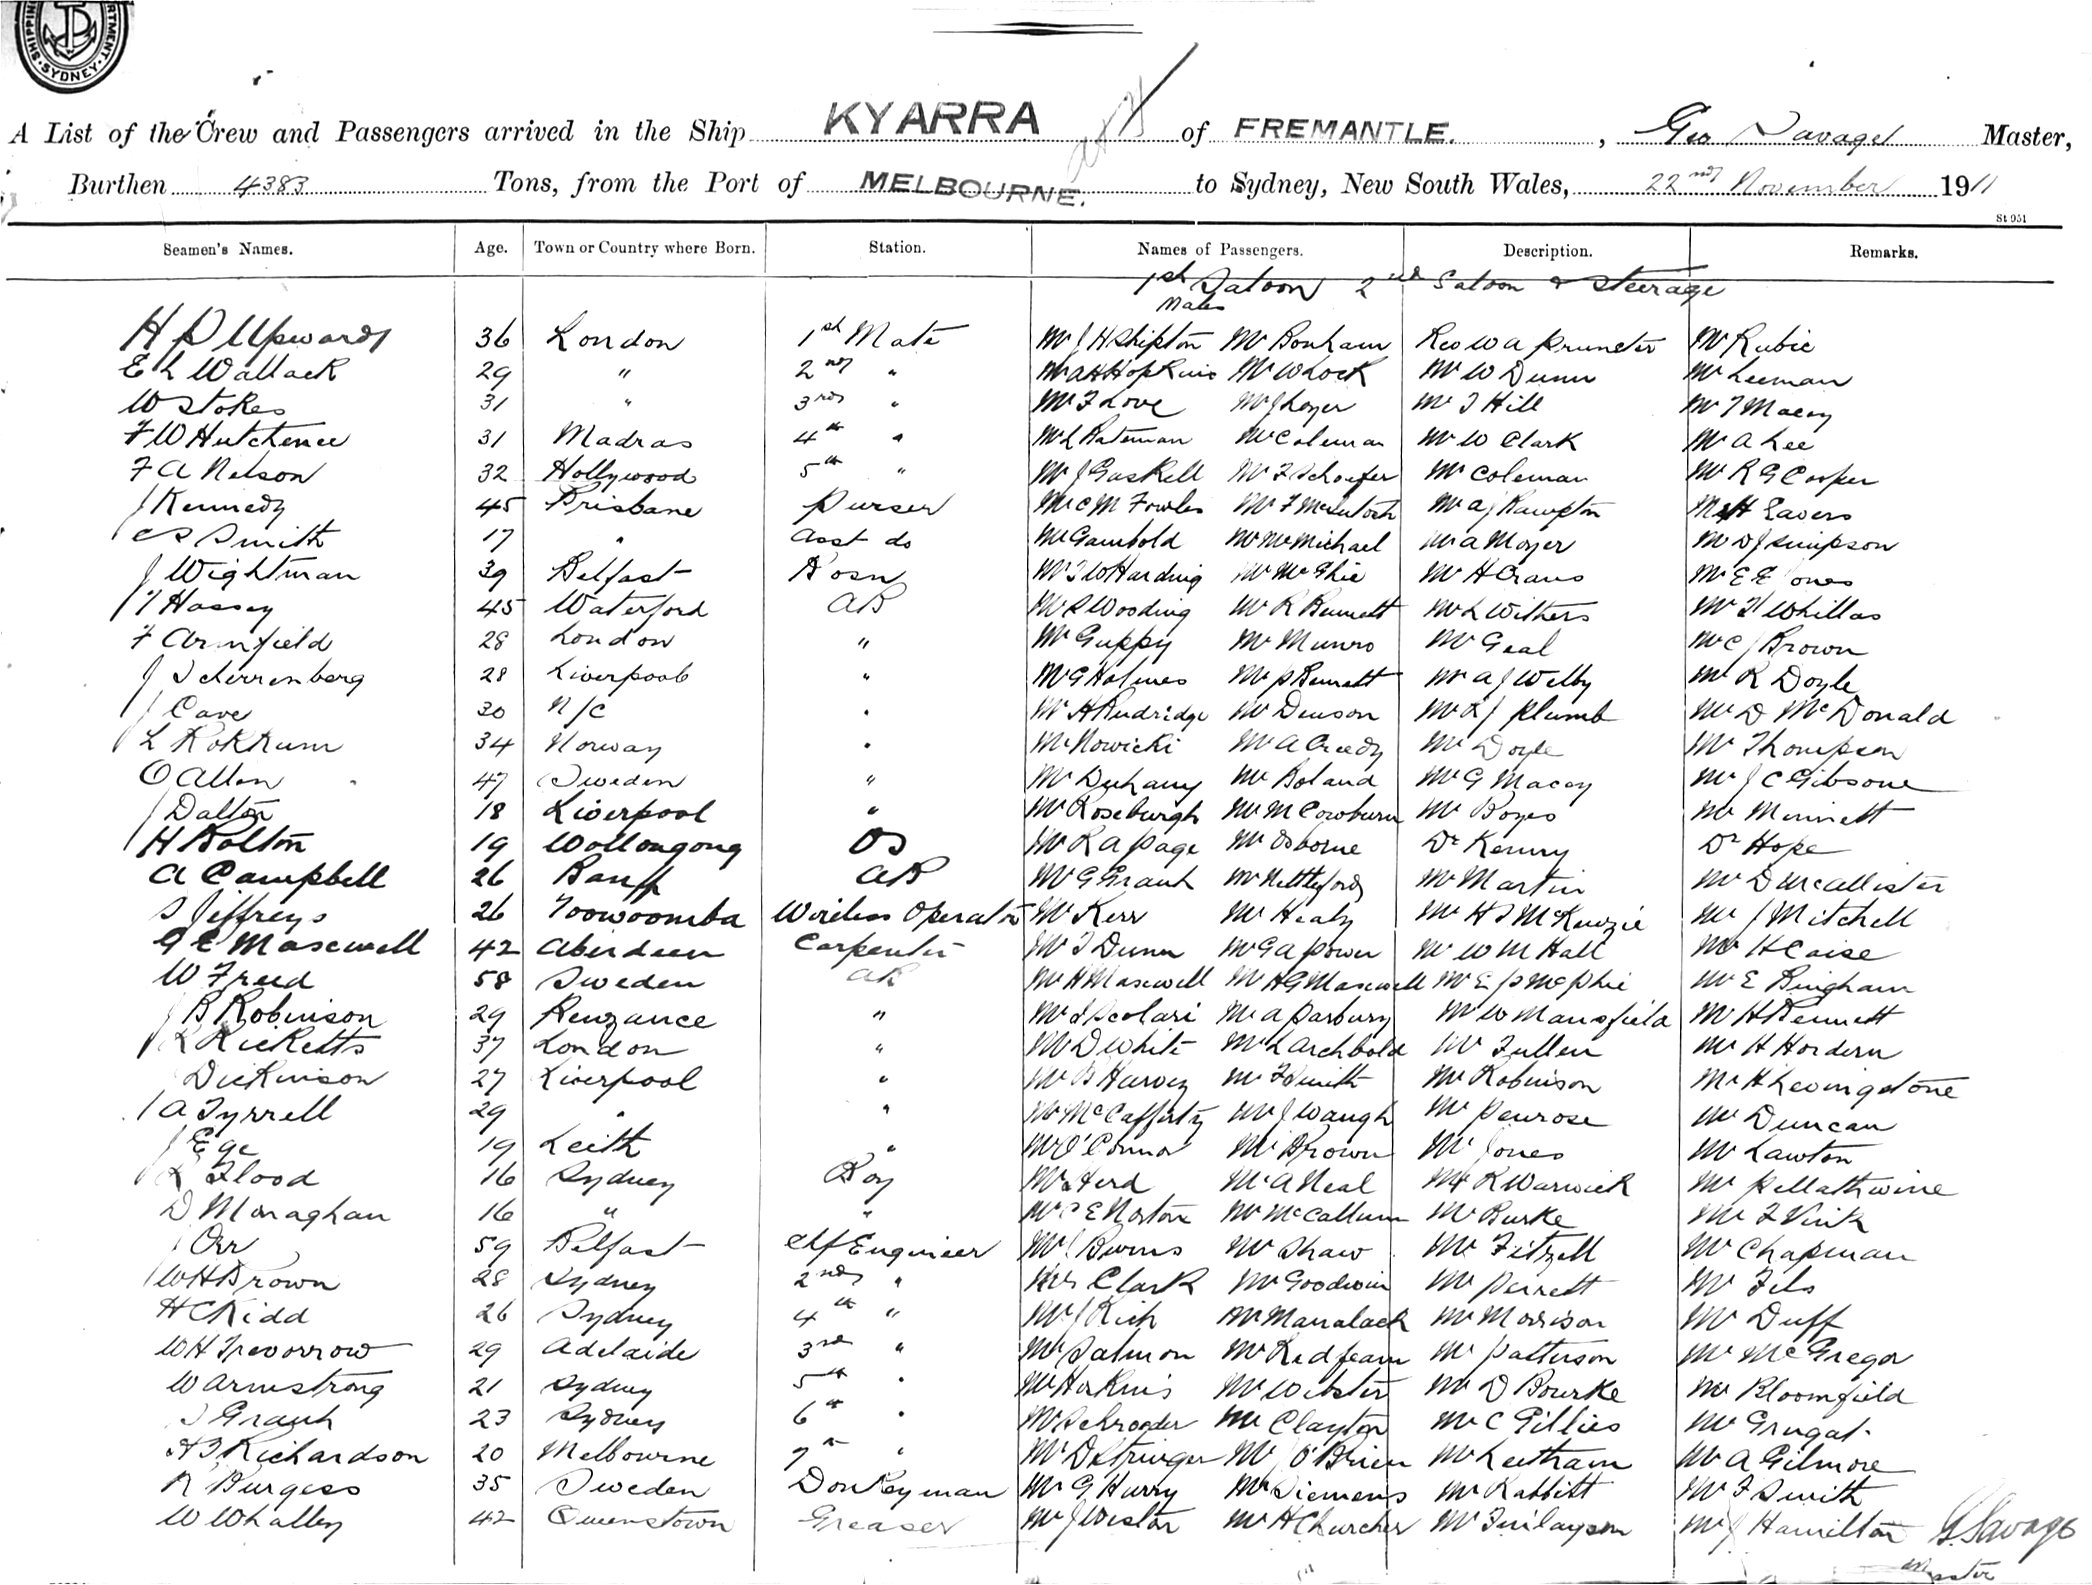 SHIPPING DEPARTMENT. SYDNEY.
A List of the Crew and Passengers arrived in the Ship KYARRA of FREMANTLE. , Geo Savage Master,
Burthen 4383 Tons, from the Port of MELBOURNE. to Sydney, New South Wales, 22nd November 1911
St 951
Seamen's Names. Age. Town or Country where Born. Station. Names of Passengers. Description. Remarks.
1st Saloon 2nd Saloon & Steerage
Males
H D Upwards 36 London 1st Mate Mr J H Shipton Mr Bonham Rev W A Mr Rubie
E L Wallack 29 " 2nd " Mr A H Hopkins Mr W Lock Mr W Dunn Mr Leeman
W Stokes 31 " 3rd " Mr F Love Mr J Loyer Mr T Hill Mr T Macoy
F W Hutchence 31 Madras 4th " Mr L Bateman Mr Coleman Mr W Clark Mr A Lee
F A Nelson 32 Hollywood 5th " Mr J Gaskell Mr F Schaefer Mr Coleman Mr R G Cooper
J Kennedy 45 Brisbane Purser Mr C M Fowles Mr F McIntosh Mr A J Rampton Mr H Eavers
C S Smith 17 " Asst do Mr Gambold Mr McMichael Mr A Moyer Mr D J Simpson
J Wightman 39 Belfast Bosn Mr T W Harding Mr McGhie Mr H Craus Mr E E Jones
T Hassey 45 Waterford AB Mr S Wooding Mr R Bennett Mr L Withers Mr F Whillas
F Armfield 28 London " Mr Guppy Mr Munro Mr Geal Mr C J Brown
J Scherrenberg 28 Liverpool " Mr G Holmes Mr P Bennett Mr A J Welby Mr R Doyle
J Cave 30 N/C " Mr H Rudridge Mr Denson Mr L J Plumb Mr D McDonald
L Rokkum 34 Norway " Mr Nowicki Mr A Creedy Mr Doyle Mr Thompson
O Allon 47 Sweden " Mr Duhany Mr Boland Mr G Macoy Mr J C Gibsone
J Dalton 18 Liverpool " Mr Roseburgh Mr M Cowburn Mr Boyes Mr Minnett
H Bolton 19 Wollongong OS Mr R A Page Mr Osborne Dr Kenny Dr Hope
A Campbell 26 Banff AB Mr G Grant Mr Nettleford Mr Martin Mr D McCallister
S Jeffreys 26 Toowoomba Wireless Operator Mr Kerr Mr Healy Mr H S McKenzie Mr J Mitchell
G C Maxwell 42 Aberdeen Carpenter Mr T Dunn Mr G A Power Mr W M Hall Mr H Caise
W Freed 58 Sweden AB Mr H Maxwell Mr H G Maxwell Mr E P McPhie Mr E Bingham
J B Robinson 29 Penzance " Mr S Scolari Mr A Parbury Mr W Mansfield Mr H Bennett
L Ricketts 37 London " Mr D White Mr L Archbold Mr Fullen Mr H Hordern
Dickinson 27 Liverpool " Mr B Harvey Mr F Smith Mr Robinson Mr H Levingstone
A Tyrrell 29 " " Mr McCafferty Mr J Waugh Mr Penrose Mr Duncan
J Ege 19 Leith " Mr O'Connor Mr Brown Mr Jones Mr Lawton
L Flood 16 Sydney Boy Mr Herd Mr A Neal Mr R Warwick Mr
D Monaghan 16 " " Mr C E Norton Mr McCallum Mr Burke Mr F Vink
J Orr 59 Belfast Chf Engineer Mr J Burns Mr Shaw Mr Fitzell Mr Chapman
W H Brown 28 Sydney 2nd " Mr Clark Mr Goodwin Mr Perrett Mr Fels
H C Kidd 26 Sydney 4th " Mr J Rich Mr Manalack Mr Morrison Mr Duff
W H Trevorrow 29 Adelaide 3rd " Mr Salmon Mr Redfearn Mr Patterson Mr McGregor
W Armstrong 21 Sydney 5th " Mr Hoskins Mr Webster Mr D Bourke Mr Bloomfield
J Grant 23 Sydney 6th " Mr Schroeder Mr Clayton Mr C Gillies Mr Grugat
H T Richardson 20 Melbourne 7th " Mr Detringer Mr J O'Brien Mr Leetham Mr A Gilmore
R Burgess 35 Sweden Donkeyman Mr G Hurry Mr Siemens Mr Rabbitt Mr F Smith
W Whalley 42 Queenstown Greaser Mr J Wistar Mr H Churcher Mr Finlayson Mr J Hamilton G Savage
Master